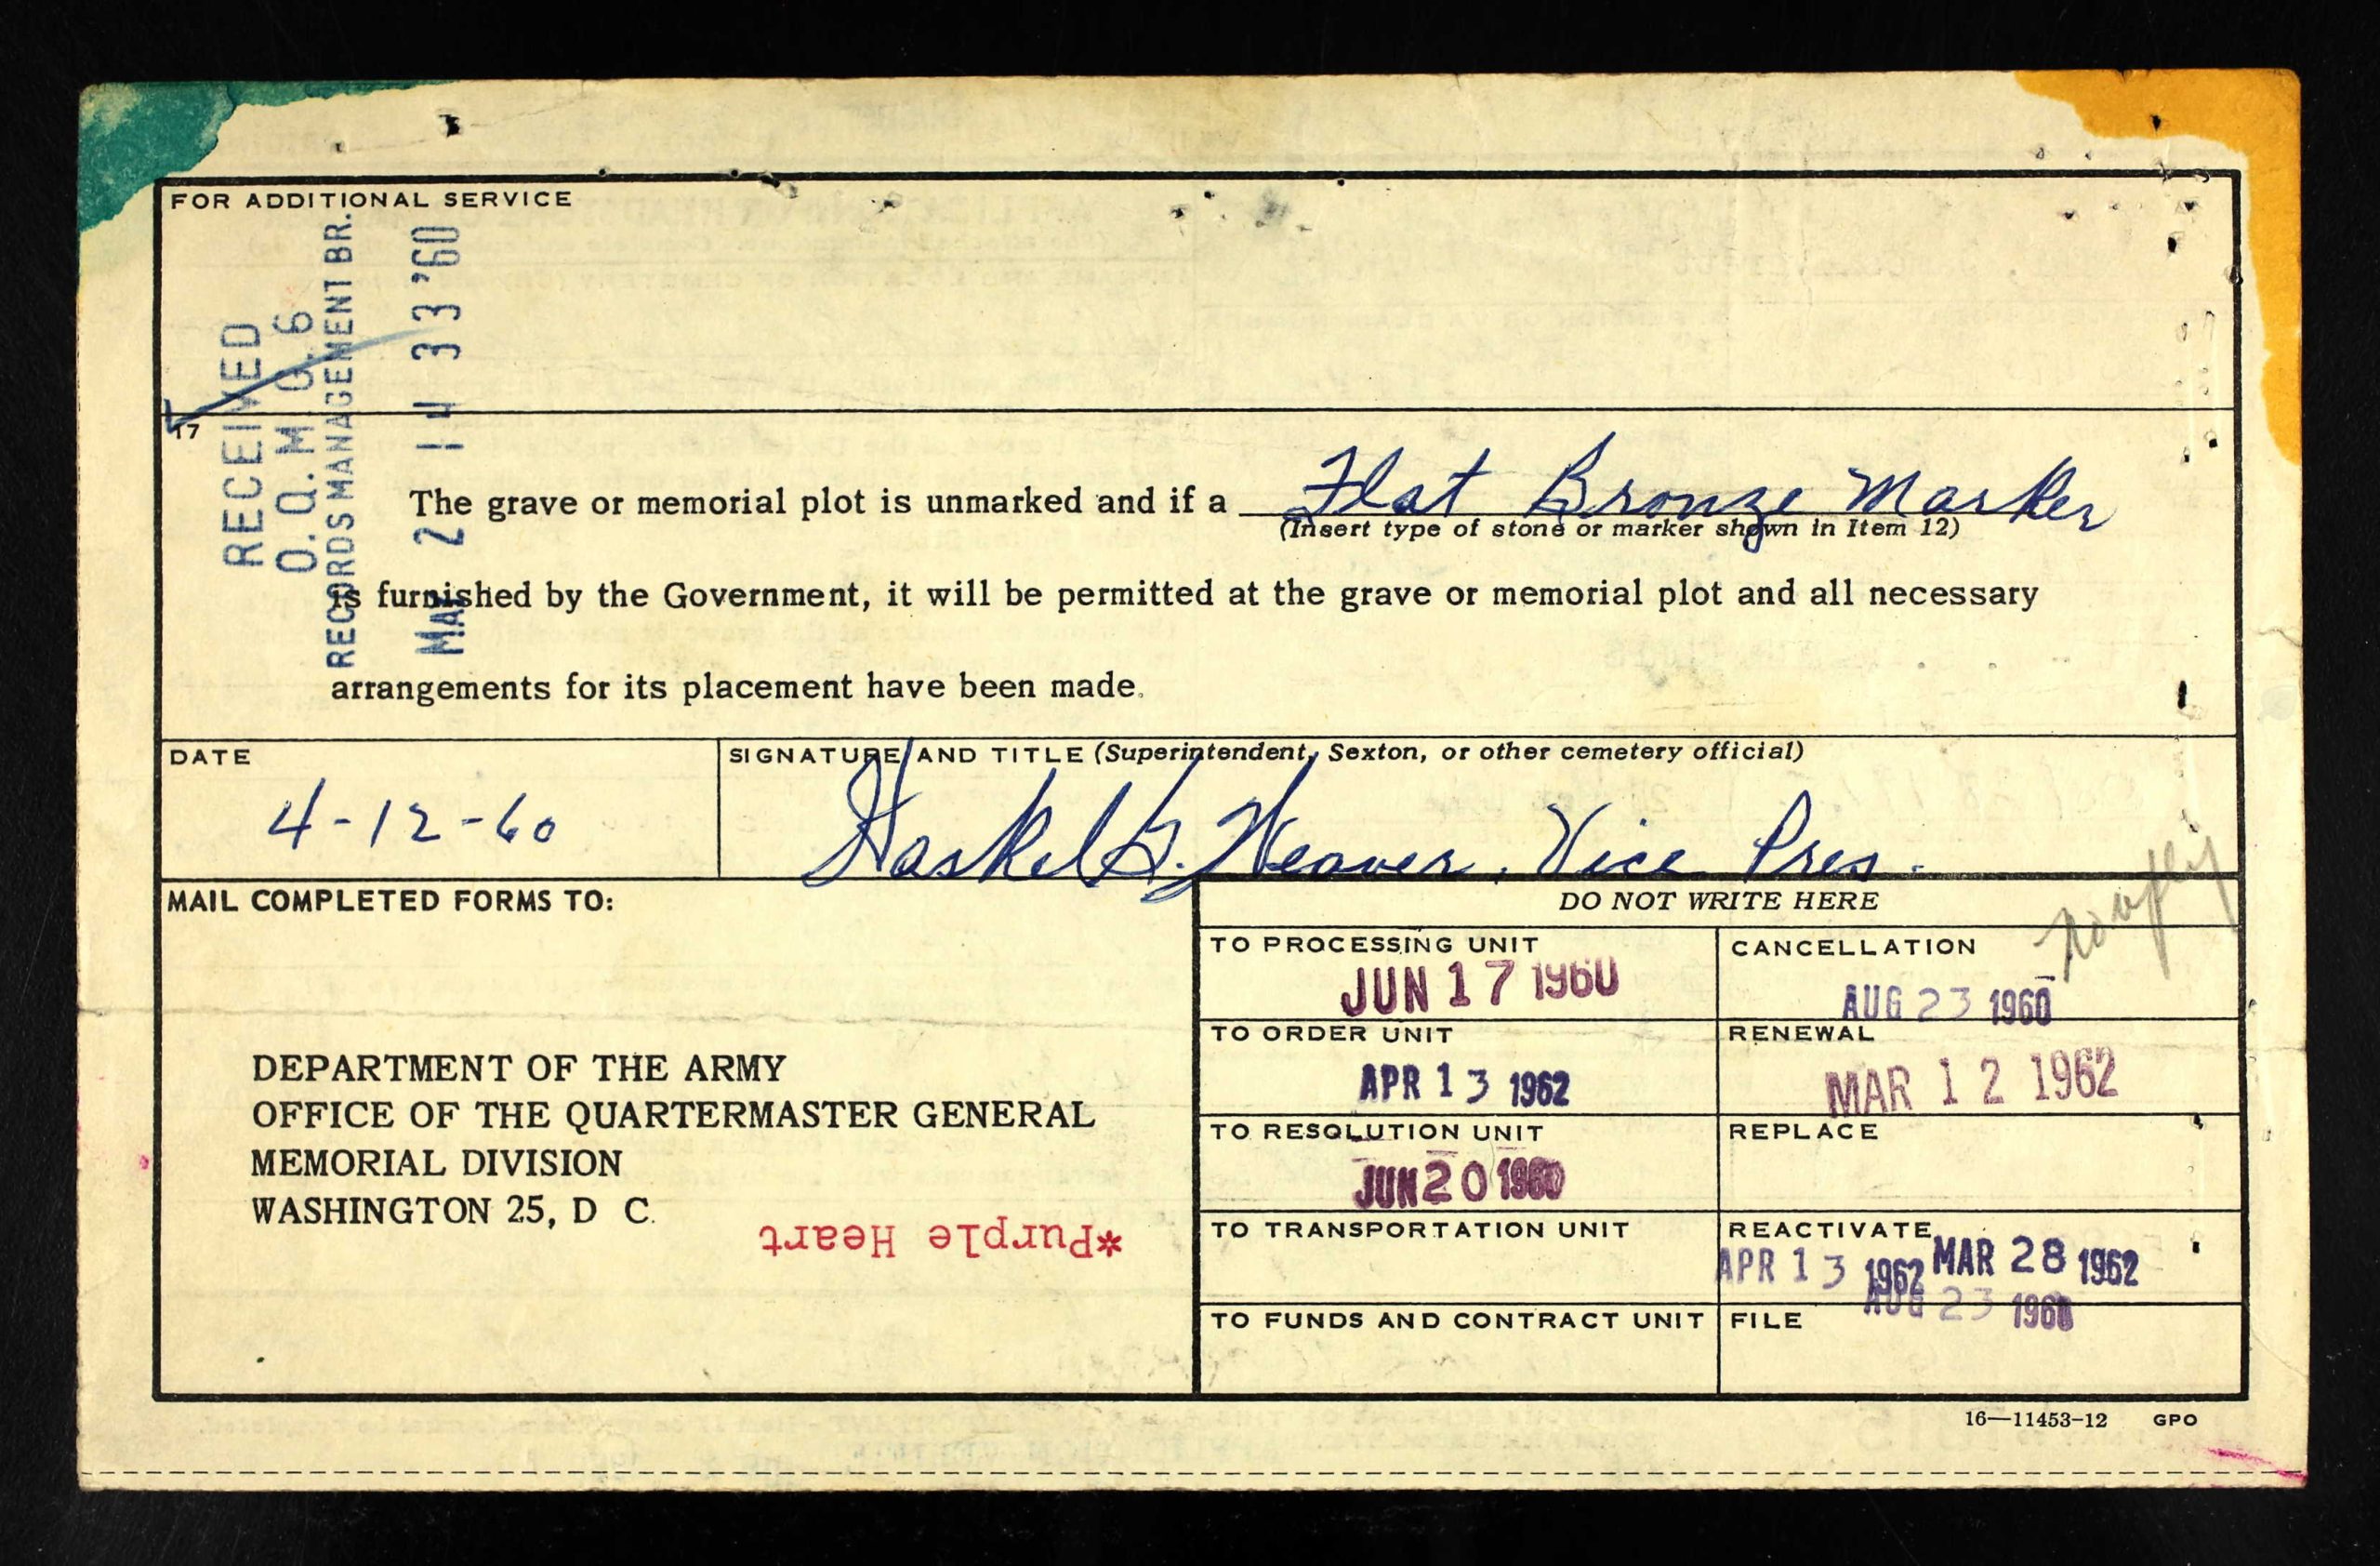 FOR ADDITIONAL SERVICE
RECEIVED
O.Q.M.G. 6
RECORDS MANAGEMENT BR.
MAY 2 '60
17
The grave or memorial plot is unmarked and if a Flat Bronze Marker
(Insert type of stone or marker shown in Item 12)
is furnished by the Government, it will be permitted at the grave or memorial plot and all necessary
arrangements for its placement have been made.
DATE
4-12-60
SIGNATURE AND TITLE (Superintendent, Sexton, or other cemetery official)
Haskel G. Weaver, Vice Pres.
MAIL COMPLETED FORMS TO:
DEPARTMENT OF THE ARMY
OFFICE OF THE QUARTERMASTER GENERAL
MEMORIAL DIVISION
WASHINGTON 25, D C.
*Purple Heart
DO NOT WRITE HERE
TO PROCESSING UNIT
JUN 17 1960
CANCELLATION
AUG 23 1960
TO ORDER UNIT
APR 13 1962
RENEWAL
MAR 12 1962
TO RESOLUTION UNIT
JUN 20 1960
REPLACE
TO TRANSPORTATION UNIT
REACTIVATE
APR 13 1962 MAR 28 1962
TO FUNDS AND CONTRACT UNIT
FILE
AUG 23 1960
16—11453-12 GPO